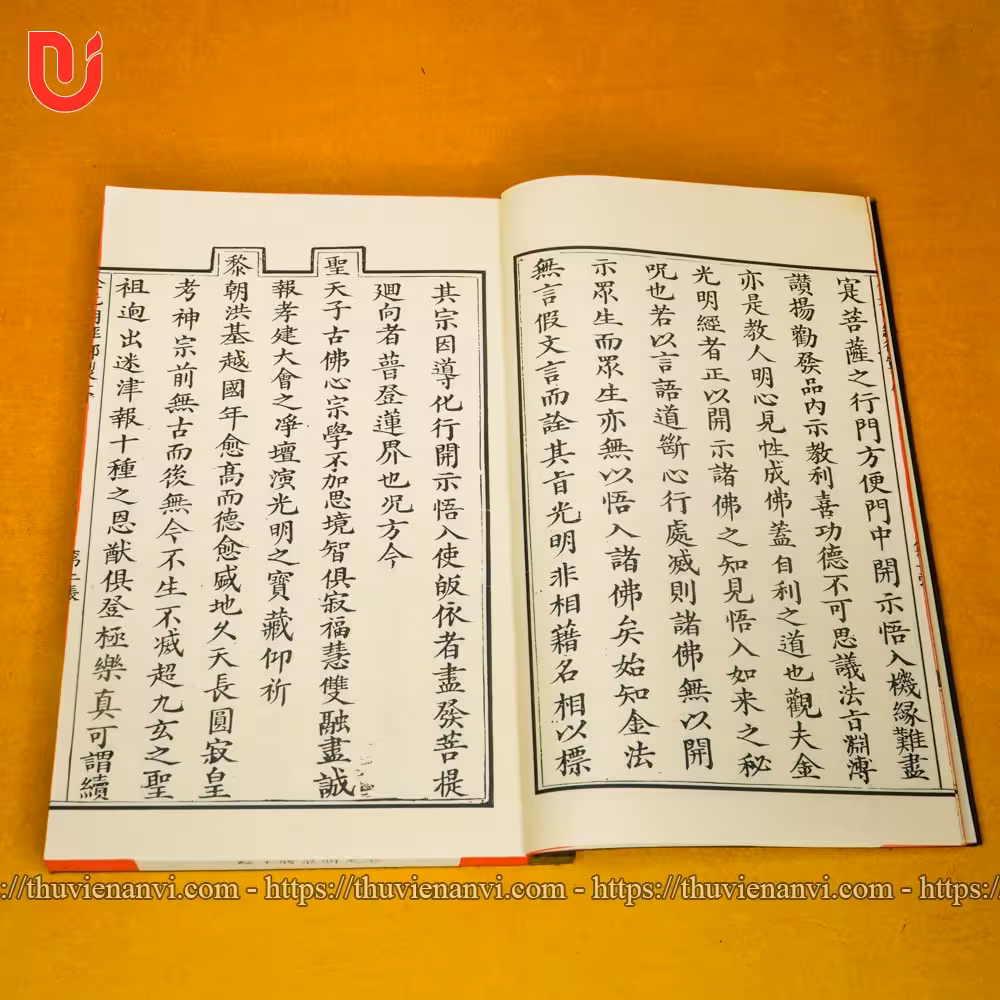 寔菩薩之行門方便門中開示悟入機緣難盡
讚揚勸發品內示教利喜功德不可思議法旨淵溥
亦是教人明心見性成佛蓋自利之道也觀夫金
光明經者正以開示諸佛之知見悟入如来之秘
呪也若以言語道斷心行處滅則諸佛無以開
示眾生而眾生亦無以悟入諸佛矣始知金法
無言假文言而詮其旨光明非相藉名相以標
其宗因導化行開示悟入使皈依者盡發菩提
廻向者普登蓮界也况方今
聖天子古佛心宗學不加思境智俱寂福慧雙融盡誠
報孝建大會之淨壇演光明之寶藏仰祈
黎朝洪基越國年愈高而德愈盛地久天長圓寂皇
考神宗前無古而後無今不生不滅超九玄之聖
祖逈出迷津報十種之恩猷俱登極樂真可謂續
https://thuvienanvi.com - https://thuvienanvi.com - https://thuvienanvi.com - https://